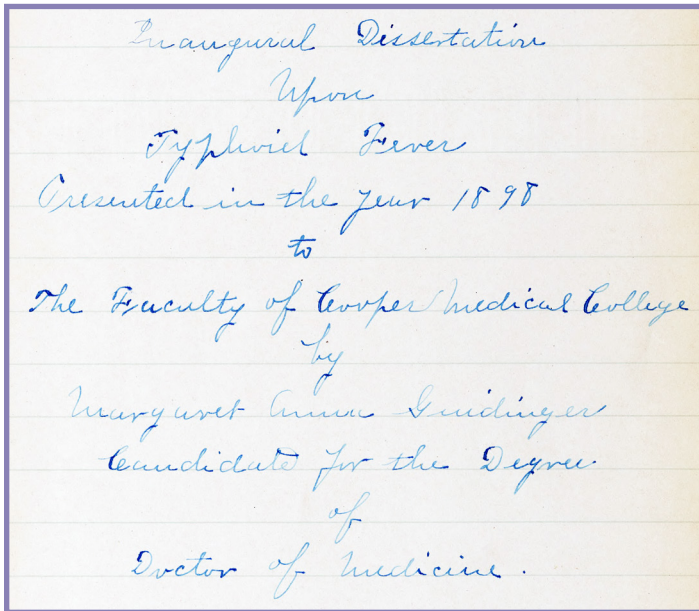 Inaugural Dissertation
Upon
Typhoid Fever
Presented in the year 1898
to
The Faculty of Cooper Medical College
by
Margaret Anna Guidinger
Candidate for the Degree
of
Doctor of Medicine.